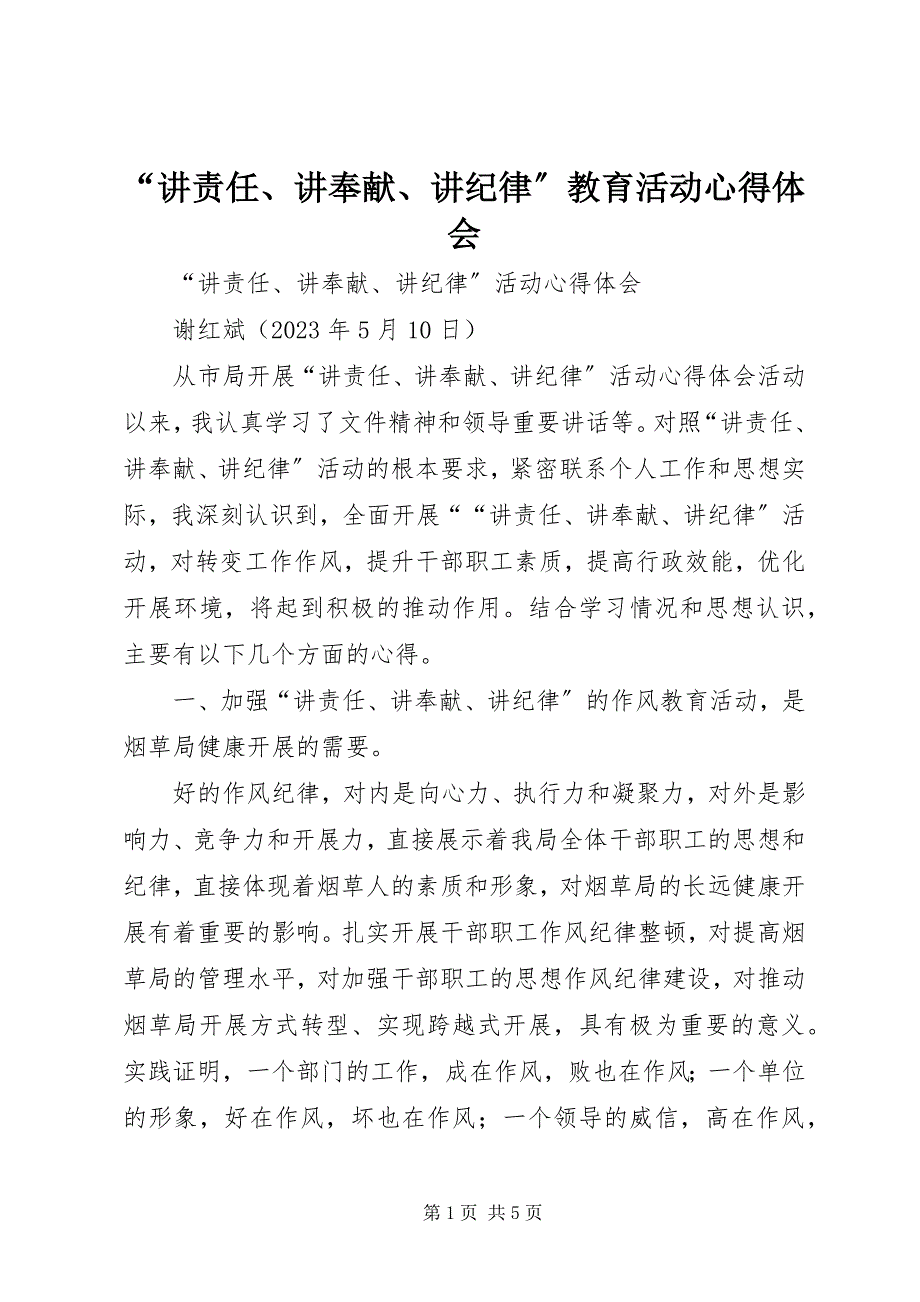 “讲责任、讲奉献、讲纪律〞教育活动心得体
会
“讲责任、讲奉献、讲纪律〞活动心得体会
谢红斌（2023 年 5 月 10 日）
从市局开展“讲责任、讲奉献、讲纪律〞活动心得体会活动
以来，我认真学习了文件精神和领导重要讲话等。对照“讲责任、
讲奉献、讲纪律〞活动的根本要求，紧密联系个人工作和思想实
际，我深刻认识到，全面开展““讲责任、讲奉献、讲纪律〞活
动，对转变工作作风，提升干部职工素质，提高行政效能，优化
开展环境，将起到积极的推动作用。结合学习情况和思想认识，
主要有以下几个方面的心得。
一、加强“讲责任、讲奉献、讲纪律〞的作风教育活动，是
烟草局健康开展的需要。
好的作风纪律，对内是向心力、执行力和凝聚力，对外是影
响力、竞争力和开展力，直接展示着我局全体干部职工的思想和
纪律，直接体现着烟草人的素质和形象，对烟草局的长远健康开
展有着重要的影响。扎实开展干部职工作风纪律整顿，对提高烟
草局的管理水平，对加强干部职工的思想作风纪律建设，对推动
烟草局开展方式转型、实现跨越式开展，具有极为重要的意义。
实践证明，一个部门的工作，成在作风，败也在作风；一个单位
的形象，好在作风，坏也在作风；一个领导的威信，高在作风，
第 1 页 共 5 页